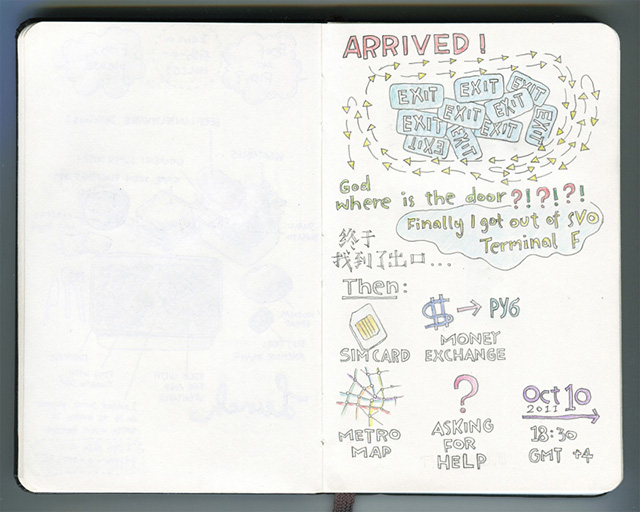 ARRIVED!
EXIT EXIT EXIT
EXIT EXIT
EXIT EXIT EXIT EXIT
EXIT
God
where is the door?!?!?!
Finally I got out of SVO
Terminal F
终于
找到了出口...
Then:
SIM CARD
$ → РУб
MONEY
EXCHANGE
METRO
MAP
?
ASKING
FOR
HELP
Oct 10
2011
18:30
GMT +4